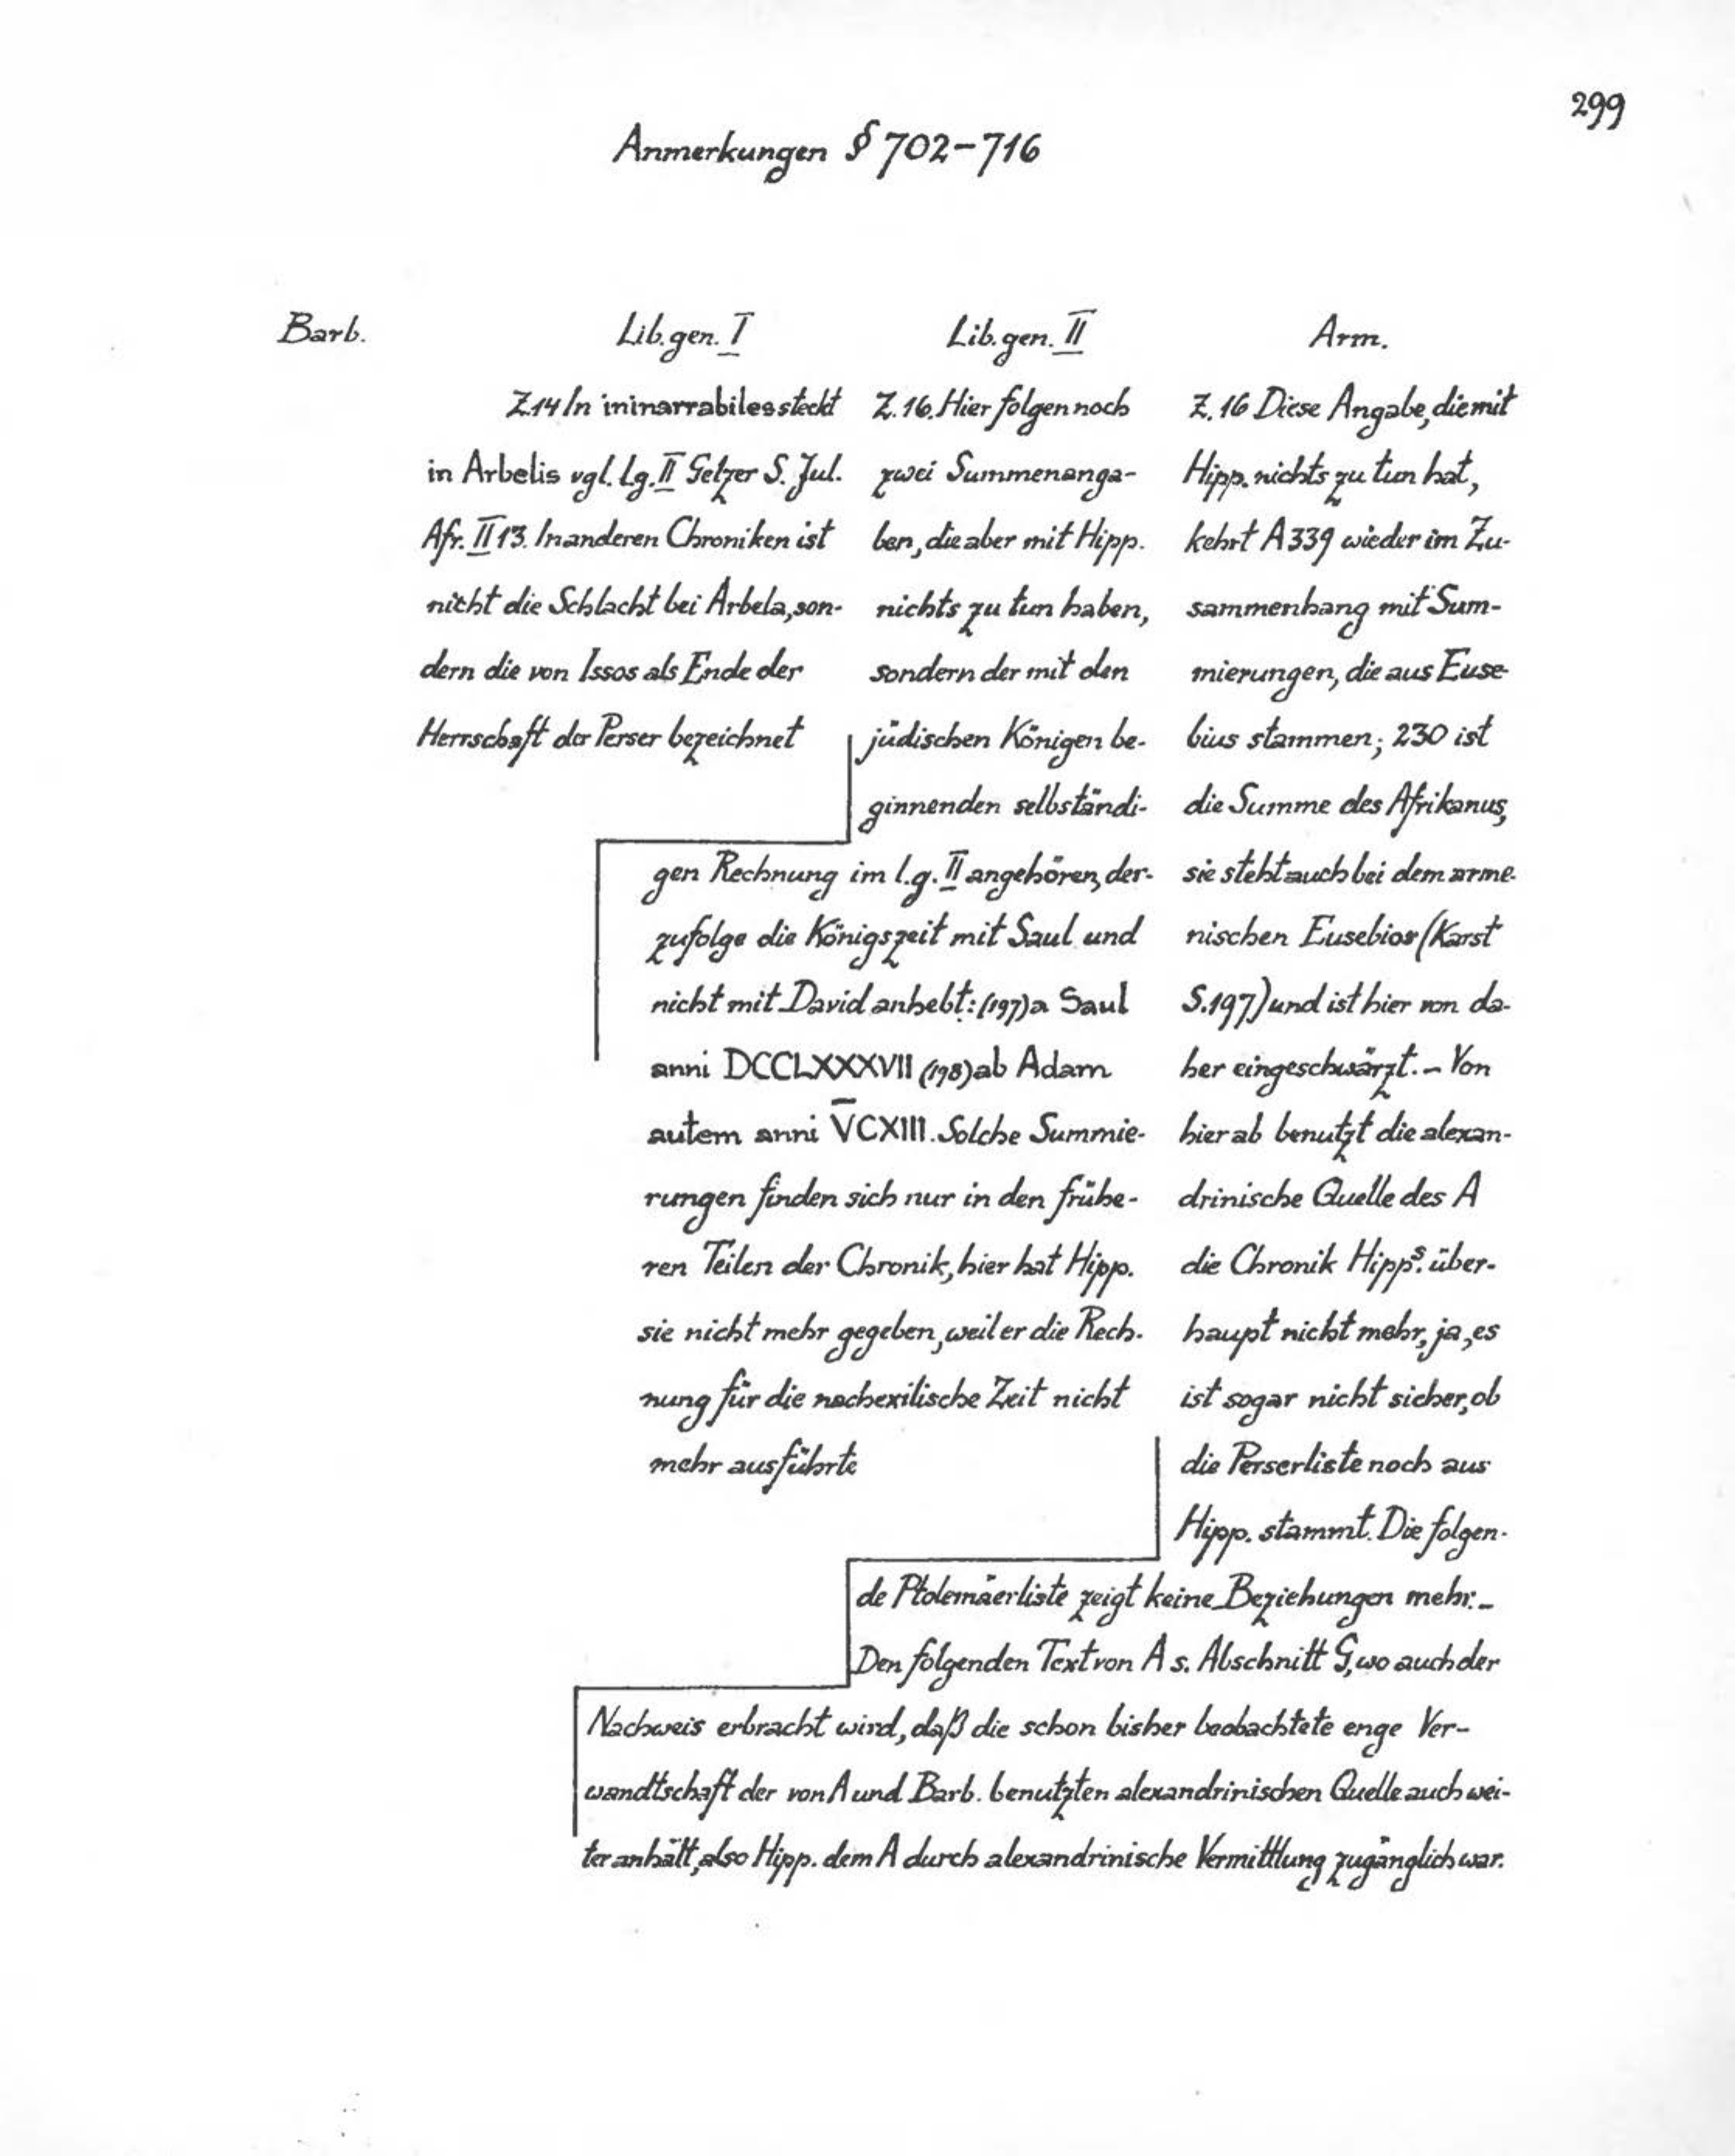 299
Anmerkungen § 702-716
Barb.
Lib. gen. I
Z.14 In ininarrabiles steckt
in Arbelis vgl. lg. II Gelzer S. Jul.
Afr. II 13. In anderen Chroniken ist
nicht die Schlacht bei Arbela, son-
dern die von Issos als Ende der
Herrschaft der Perser bezeichnet
Lib. gen. II
Z. 16. Hier folgen noch
zwei Summenanga-
ben, die aber mit Hipp.
nichts zu tun haben,
sondern der mit den
jüdischen Königen be-
ginnenden selbständi-
gen Rechnung im l.g. II angehören, der-
zufolge die Königszeit mit Saul und
nicht mit David anhebt: (197) a Saul
anni DCCLXXXVII (198) ab Adam
autem anni V̅CXIII. Solche Summie-
rungen finden sich nur in den frühe-
ren Teilen der Chronik, hier hat Hipp.
sie nicht mehr gegeben, weil er die Rech-
nung für die nachexilische Zeit nicht
mehr ausführte
Arm.
Z. 16 Diese Angabe, die mit
Hipp. nichts zu tun hat,
kehrt A 339 wieder im Zu-
sammenhang mit Sum-
mierungen, die aus Euse-
bius stammen; 230 ist
die Summe des Afrikanus,
sie steht auch bei dem arme-
nischen Eusebios (Karst
S. 197) und ist hier von da-
her eingeschwärzt. - Von
hier ab benutzt die alexan-
drinische Quelle des A
die Chronik Hipps. über-
haupt nicht mehr, ja, es
ist sogar nicht sicher, ob
die Perserliste noch aus
Hipp. stammt. Die folgen-
de Ptolemäerliste zeigt keine Beziehungen mehr. -
Den folgenden Text von A s. Abschnitt G, wo auch der
Nachweis erbracht wird, daß die schon bisher beobachtete enge Ver-
wandtschaft der von A und Barb. benutzten alexandrinischen Quelle auch wei-
ter anhält, also Hipp. dem A durch alexandrinische Vermittlung zugänglich war.